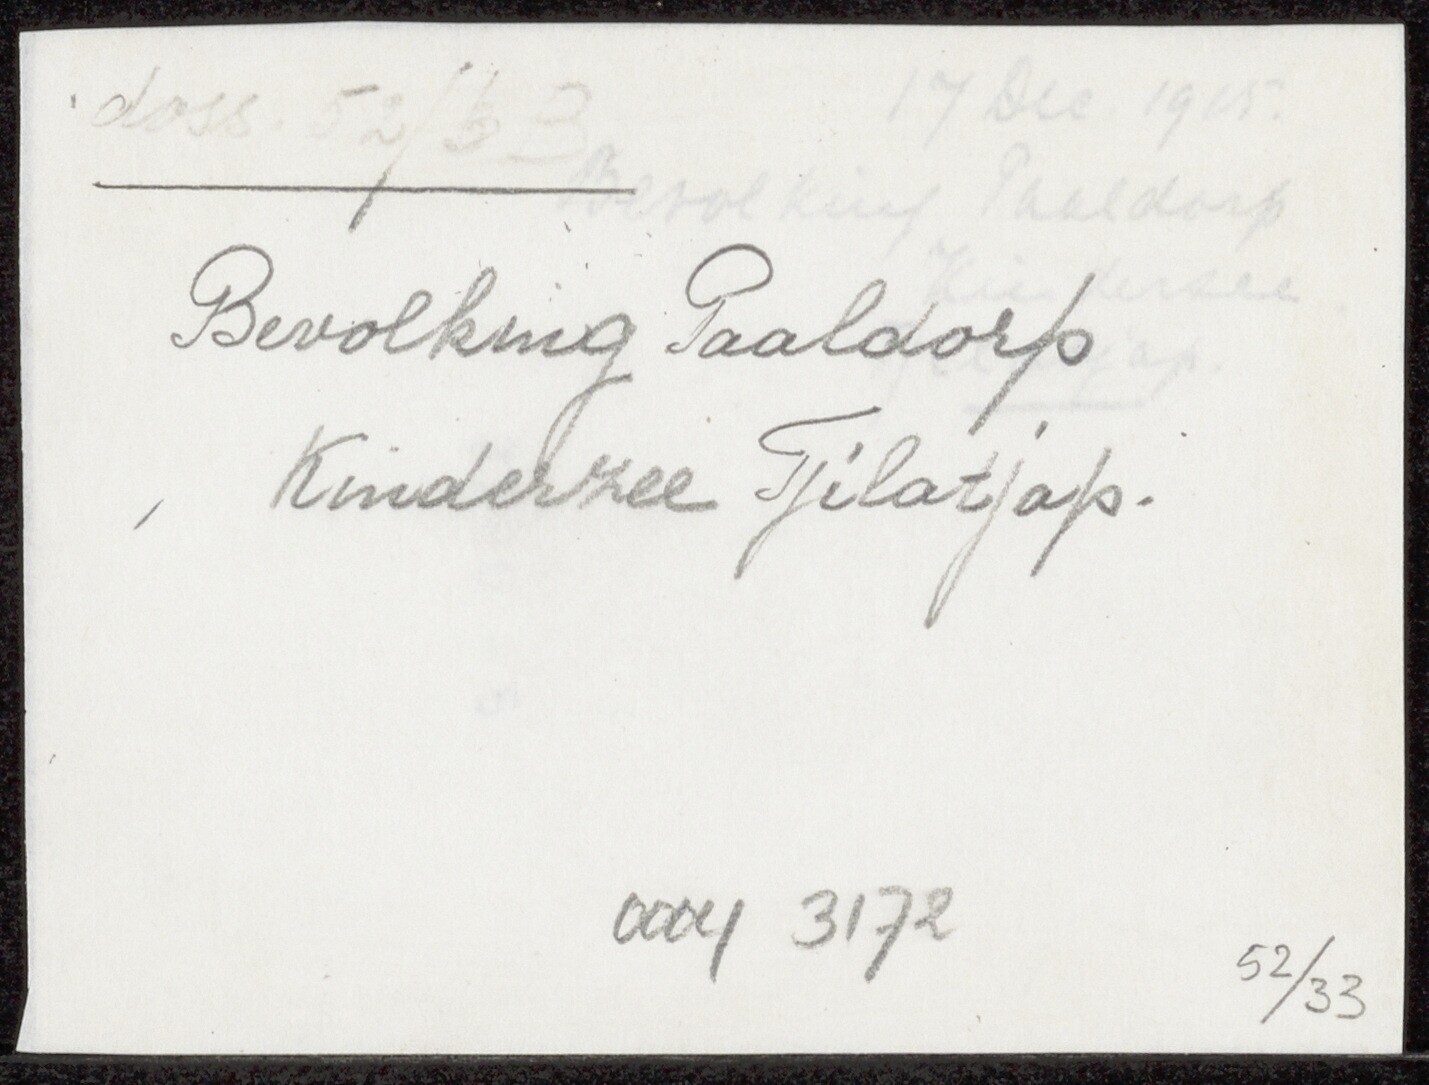 doss. 52/33
17 Dec. 1915.
Bevolking Paaldorp
Kinderzee
Tjilatjap.
Bevolking Paaldorp
Kinderzee Tjilatjap.
3172
52/33